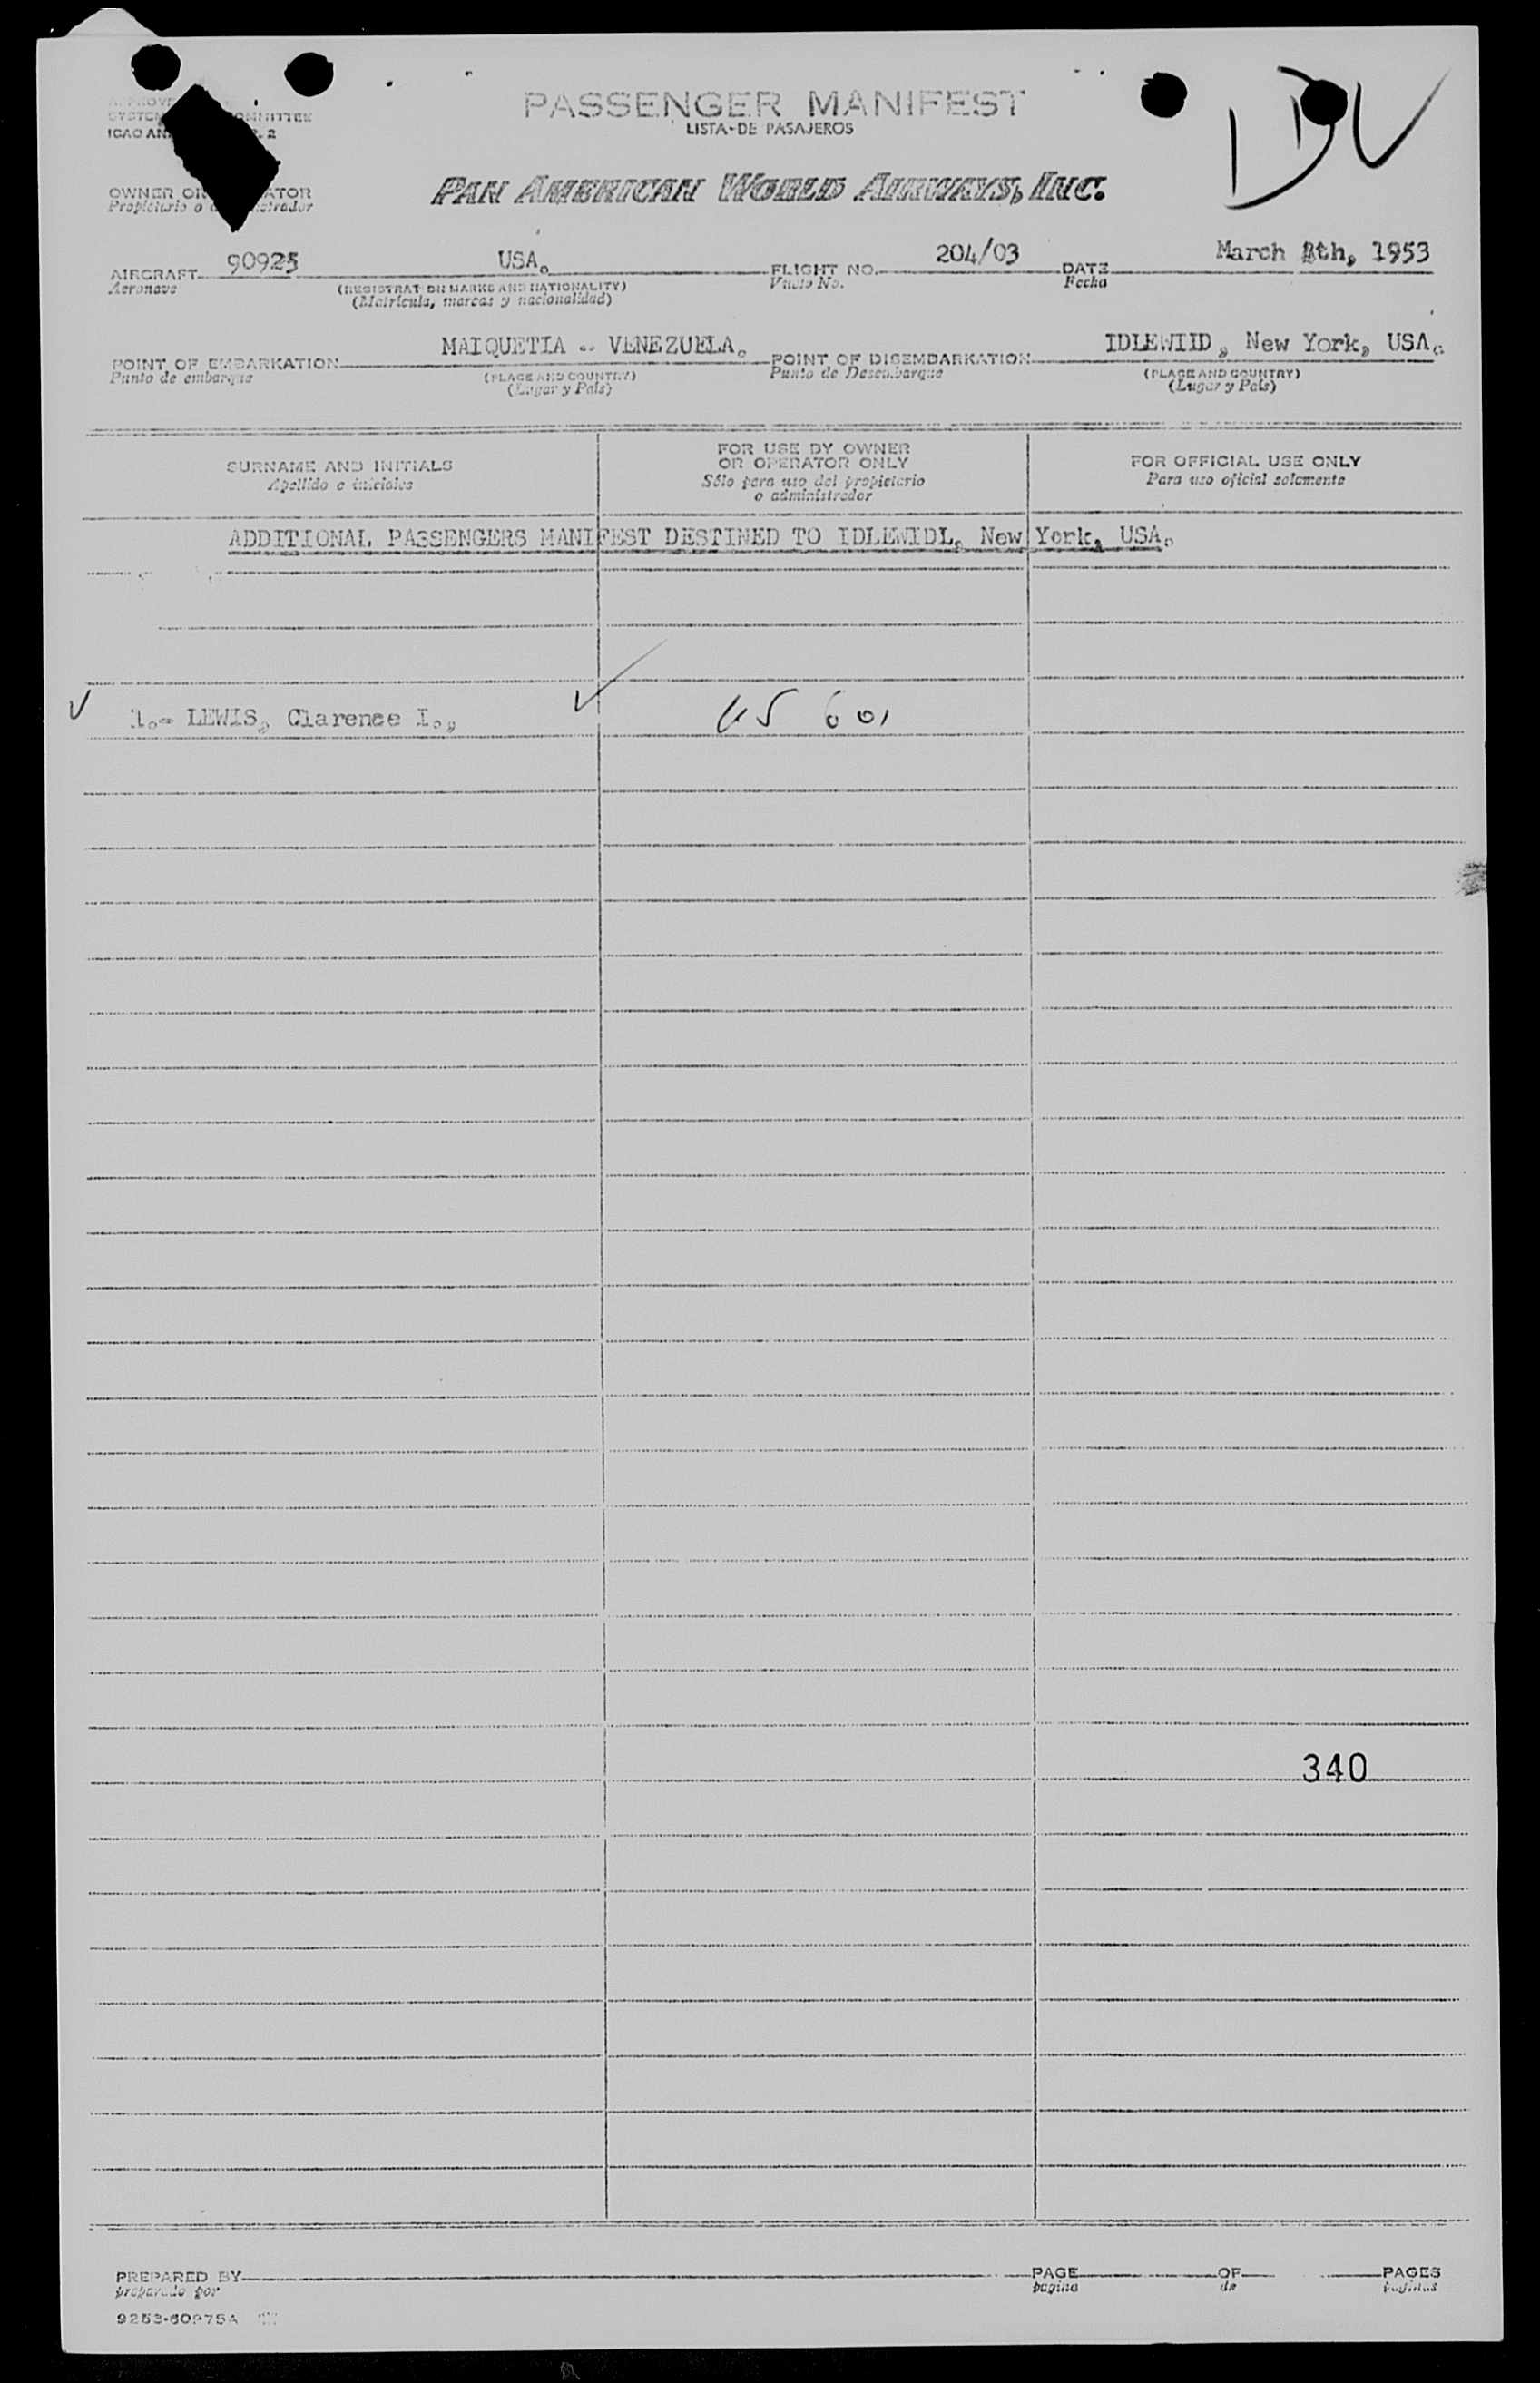 PASSENGER MANIFEST
LISTA DE PASAJEROS
ICAO
OWNER OR
Propietario o
PAN AMERICAN WORLD AIRWAYS, INC.
AIRCRAFT 90925 USA. FLIGHT NO. 204/03 DATE March 8th, 1953
Aeronave (REGISTRATION MARKS AND NATIONALITY) Vuelo No. Fecha
(Matrícula, marcas y nacionalidad)
POINT OF EMBARKATION MAIQUETIA - VENEZUELA. POINT OF DISEMBARKATION IDLEWIID, New York, USA.
Punto de embarque (PLACE AND COUNTRY) Punto de Desembarque (PLACE AND COUNTRY)
(Lugar y País) (Lugar y País)
SURNAME AND INITIALS
Apellido e iniciales
FOR USE BY OWNER
OR OPERATOR ONLY
Sólo para uso del propietario
o administrador
FOR OFFICIAL USE ONLY
Para uso oficial solamente
ADDITIONAL PASSENGERS MANIFEST DESTINED TO IDLEWIDL, New York, USA.
1.- LEWIS, Clarence I.,
340
PREPARED BY PAGE OF PAGES
preparado por pagina de paginas